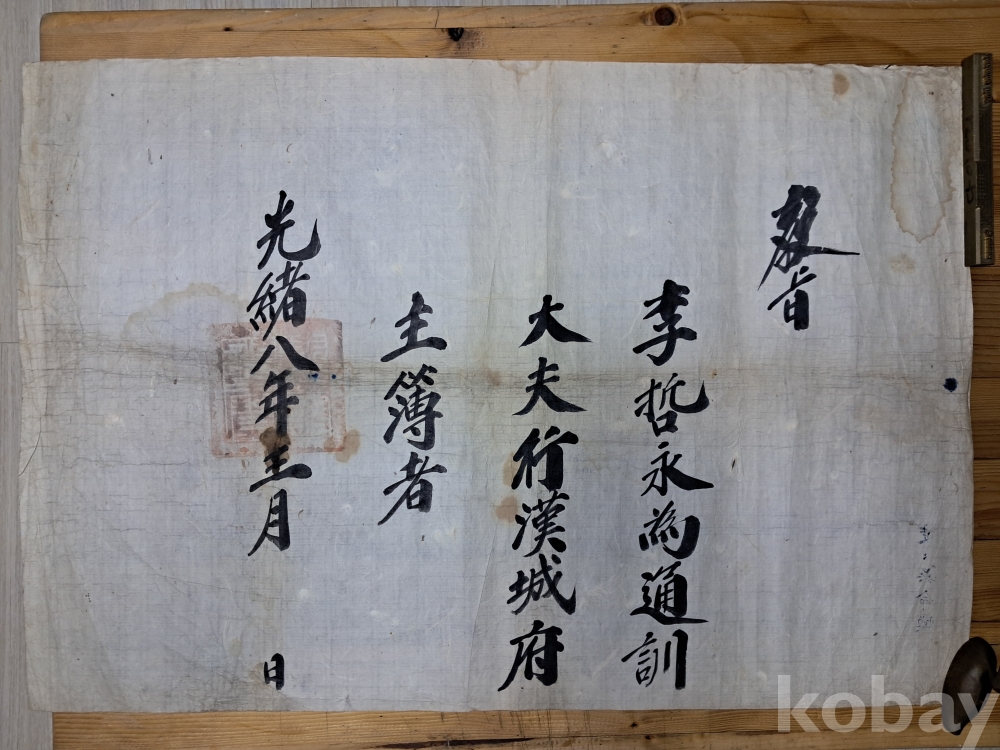 敎旨
李哲永為通訓
大夫行漢城府
主簿者
光緖八年三月 日
kobay